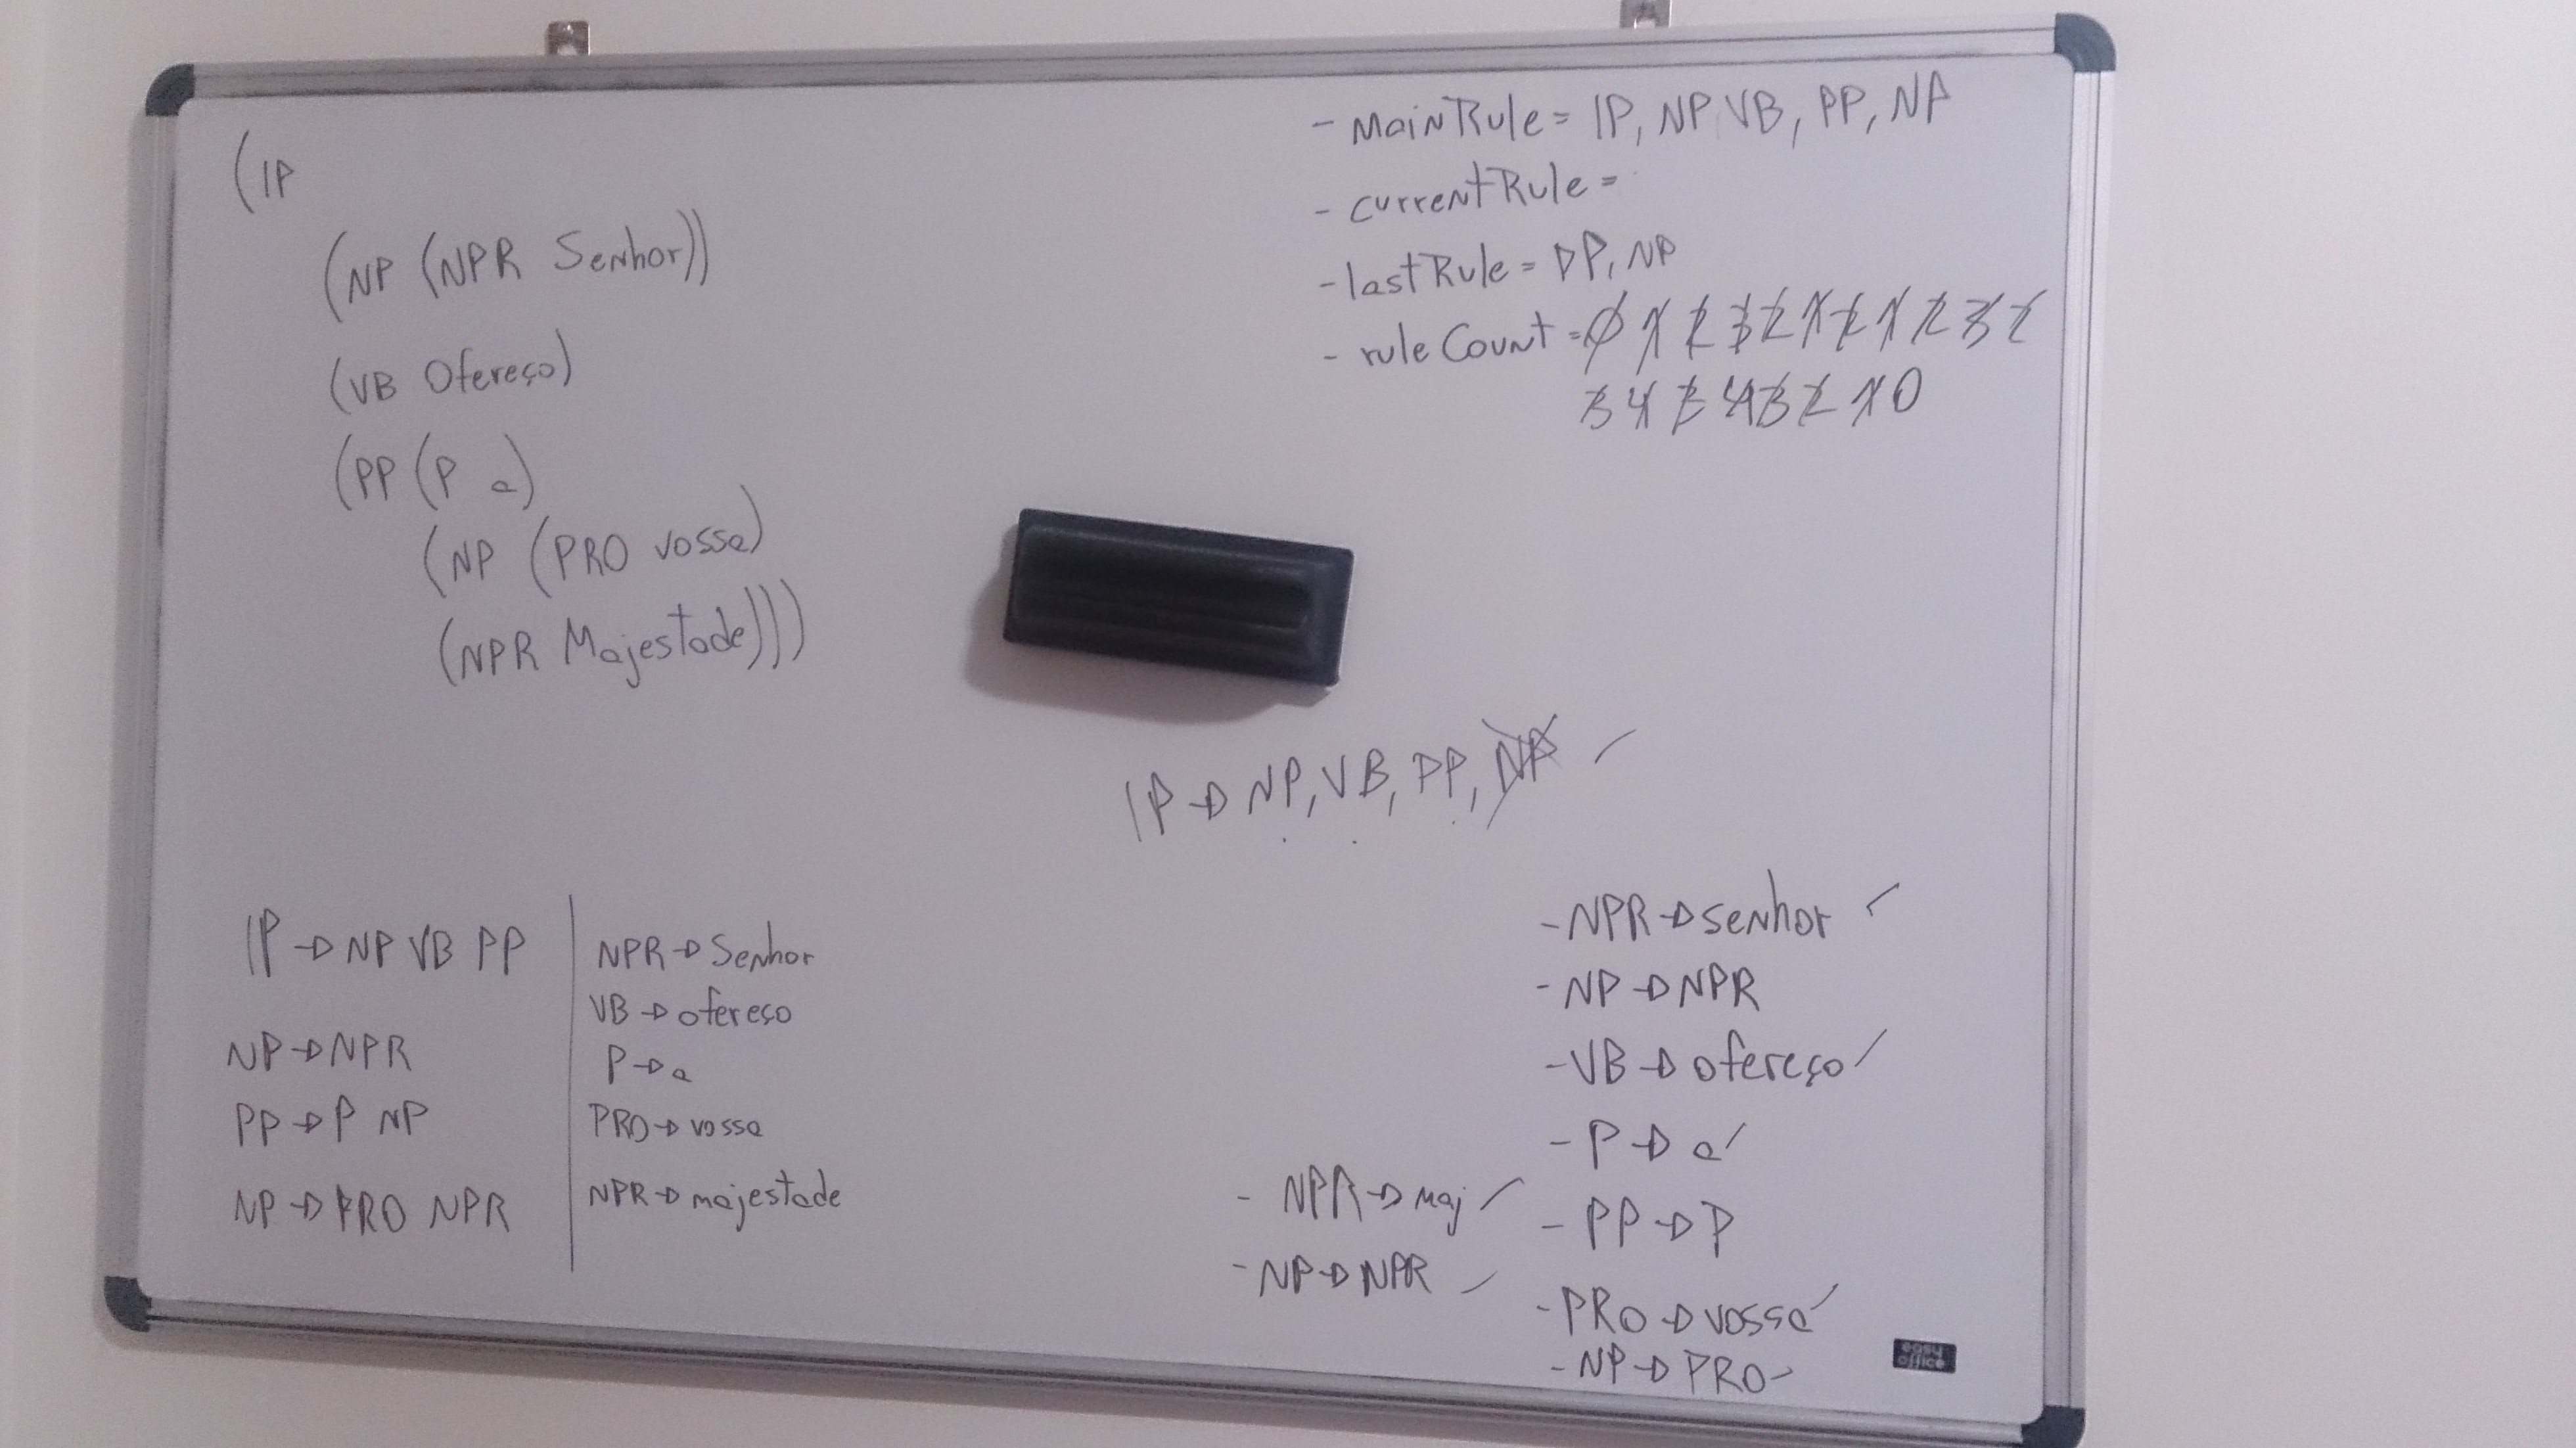 (IP
(NP (NPR Senhor))
(VB Ofereço)
(PP (P a)
(NP (PRO vossa)
(NPR Majestade)))
- MainRule = IP, NP VB, PP, NP
- currentRule =
- lastRule = PP, NP
- ruleCount = 0 1 2 3 2 1 2 1 2 3 2
3 4 3 4 3 2 1 0
IP → NP, VB, PP, NP
IP → NP VB PP
NP → NPR
PP → P NP
NP → PRO NPR
NPR → Senhor
VB → ofereço
P → a
PRO → vossa
NPR → majestade
- NPR → maj
- NP → NPR
- NPR → senhor
- NP → NPR
- VB → ofereço
- P → a
- PP → P
- PRO → vossa
- NP → PRO
easy
office